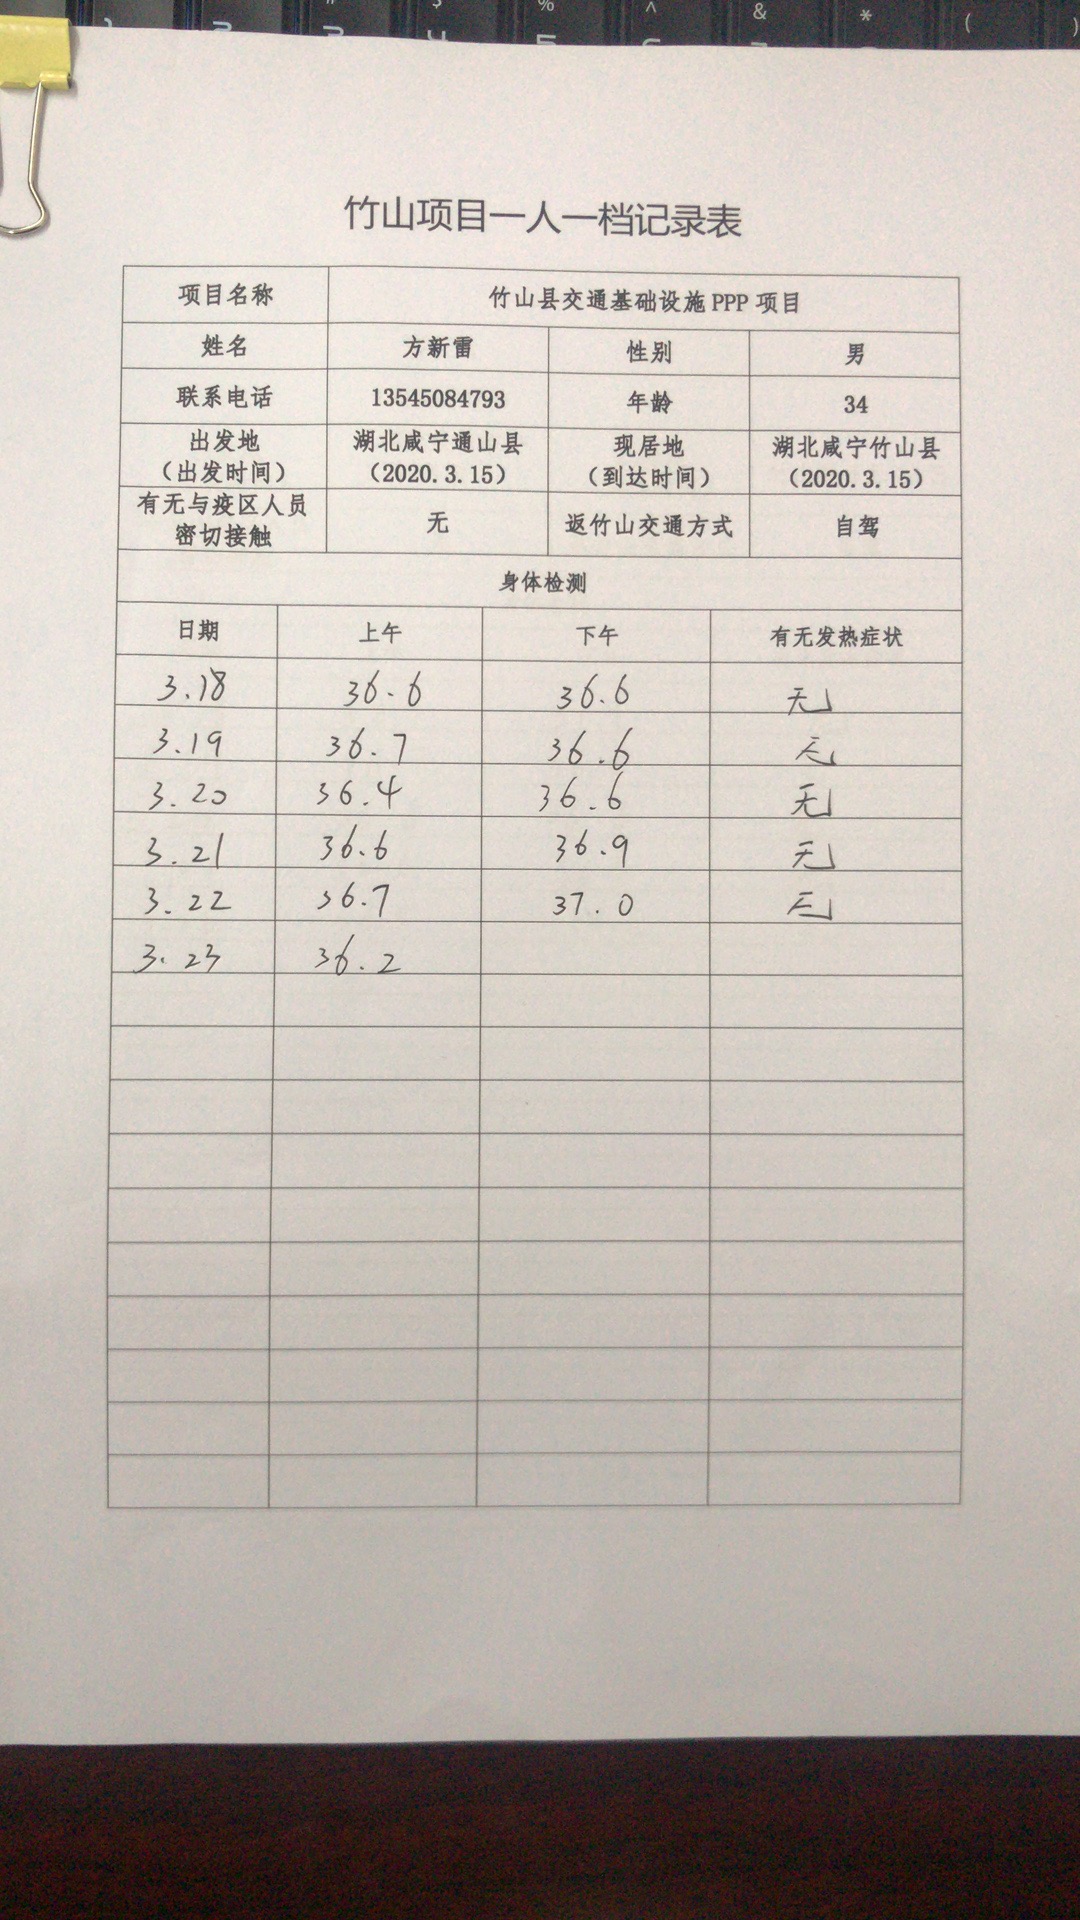 竹山项目一人一档记录表
项目名称 竹山县交通基础设施 PPP 项目
姓名 方新雷 性别 男
联系电话 13545084793 年龄 34
出发地 湖北咸宁通山县 现居地 湖北咸宁竹山县
（出发时间） （2020.3.15） （到达时间） （2020.3.15）
有无与疫区人员
密切接触 无 返竹山交通方式 自驾
身体检测
日期 上午 下午 有无发热症状
3.18 36.6 36.6 无
3.19 36.7 36.6 无
3.20 36.4 36.6 无
3.21 36.6 36.9 无
3.22 36.7 37.0 无
3.23 36.2